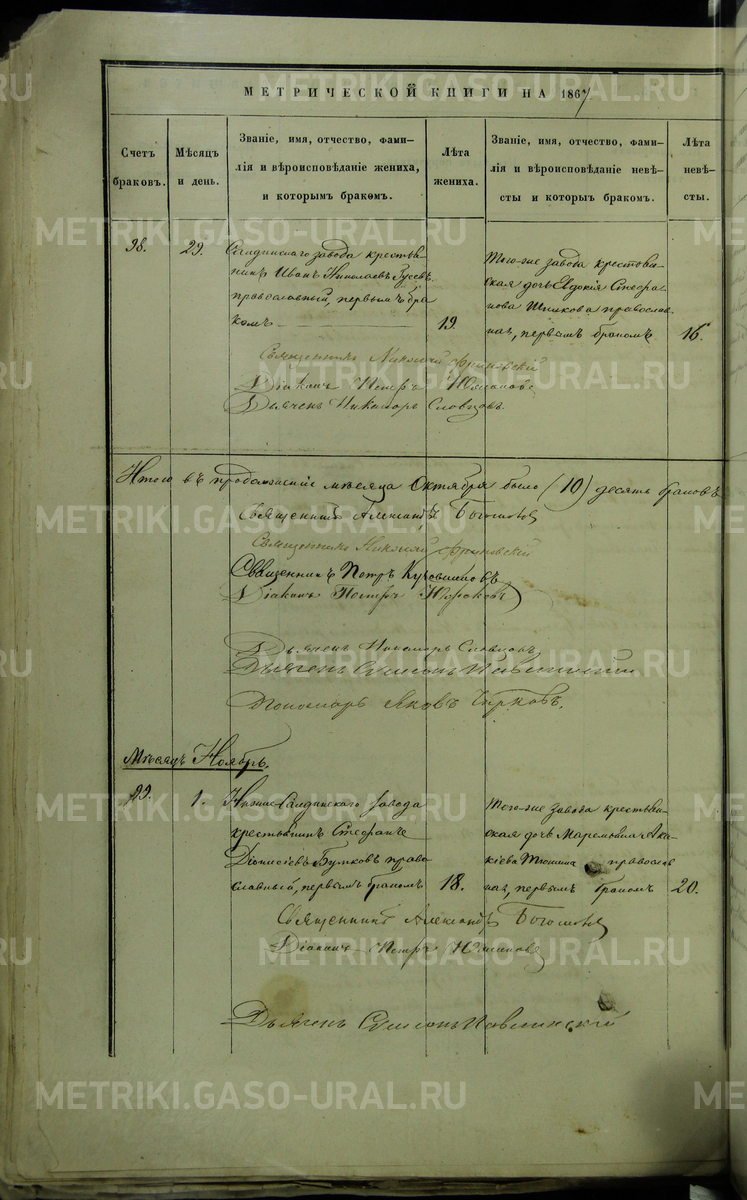 МЕТРИЧЕСКОЙ КНИГИ НА 1867
Счетъ браковъ.
Мѣсяцъ и день.
Званіе, имя, отчество, фами-
лія и вѣроисповѣданіе жениха,
и которымъ бракомъ.
Лѣта жениха.
Званіе, имя, отчество, фами-
лія и вѣроисповѣданіе невѣ-
сты и которыъ бракомъ.
Лѣта невѣ-
сты.
98.
29.
Салдинскаго завода крестья-
нинъ Иванъ Николаевъ Гусевъ
православный, первымъ бра
комъ
19.
Того-же завода крестьян-
ская дочь Евдокія Стефа-
нова православ
ная, первымъ бракомъ
16.
Священникъ Николай
Діаконъ Петръ
Дьячекъ Никаноръ Словцовъ.
Итого въ продолженіе мѣсяца Октября было (10) десять браковъ
Священникъ Александръ
Священникъ Николай
Священникъ Петръ
Діаконъ Петръ
Дьячекъ Никаноръ Словцовъ,
Дьячекъ
Пономарь Яковъ
Мѣсяцъ Ноябрь.
99.
1.
Нижне-Салдинскаго завода
крестьянинъ Стефанъ
Діонисіевъ право
славный, первымъ бракомъ
18.
Того-же завода крестьян-
ская дочь Ака-
кіева православ
ная, первымъ бракомъ
20.
Священникъ Александръ
Діаконъ Петръ
Дьячекъ
METRIKI.GASO-URAL.RU